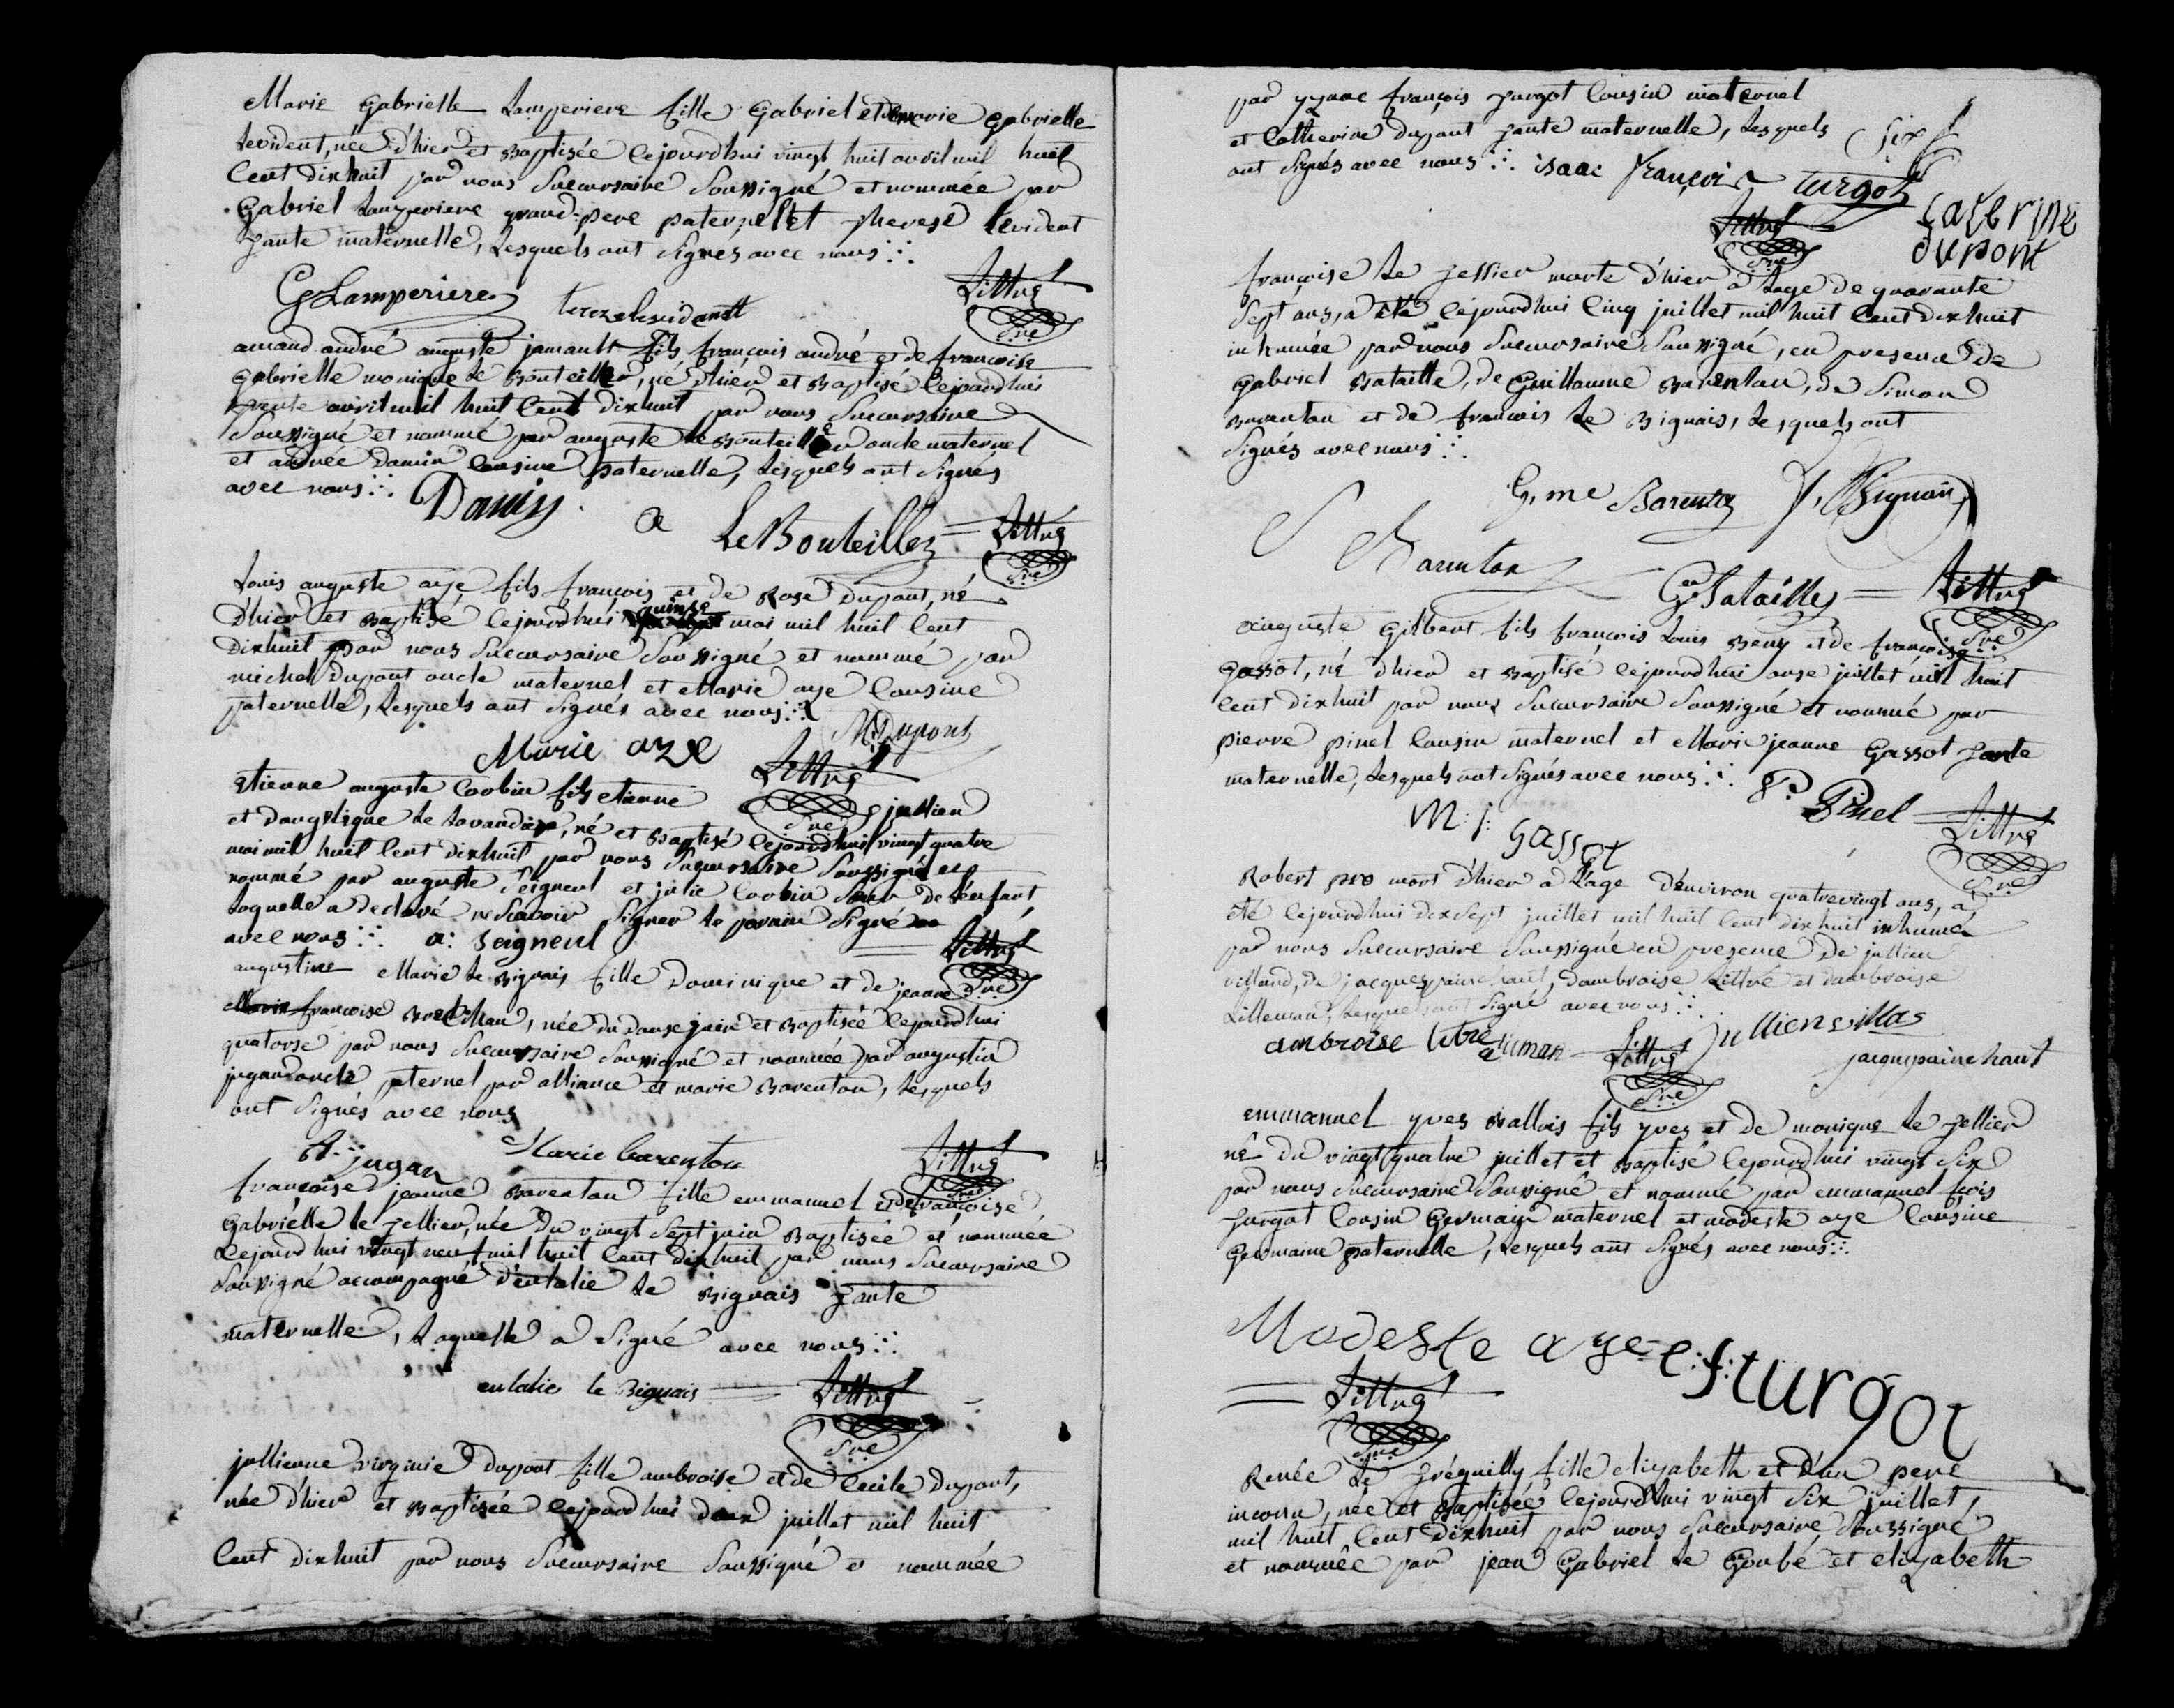 Marie Gabrielle Lamperiere fille Gabriel et de marie Gabrielle
Levident, née d'hier et Baptisée cejourdhui vingt huit avril mil huit
Cent dixhuit par nous Succursaire Soussigné et nommée par
Gabriel Lamperiere grand-pere paternel et therese Levident
tante maternelle, Lesquels ont Signés avec nous
GLamperiere Littré
Sre
amand andré auguste jamault fils françois andré et de francoise
Gabrielle monique Le Bouteiller, né d'hier et Baptisé cejourdhui
trente avril mil huit Cent dixhuit par nous Succursaire
Soussigné et nommé par auguste Le Bouteiller oncle maternel
et andrée Damin Cousine paternelle, Lesquels ont Signés
avec nous
a LeBouteiller Littré
Sre
Louis auguste aze fils françois et de Rose Dupont, né
D'hier et Baptisé Cejourdhui quinze mai mil huit Cent
Dixhuit par nous Succursaire Soussigné et nommé par
michel Dupont oncle maternel et Marie aze Cousine
paternelle, Lesquels ont Signés avec nous
MDupont
Marie aze Littré
Sre
Etienne auguste Corbin fils etienne jullien
et dangelique Le Lavandier, né et Baptisé Cejourdhui vingt quatre
mai mil huit Cent dixhuit par nous Succursaire Soussigné et
nommé par auguste Seigneul et julie Corbin Sœur de L'enfant
Laquelle a declaré ne Scavoir Signer Le parain Signé
avec nous a: Seigneul Littré
Sre
augustine Marie Le Bignais fille Dominique et de jeanne
francoise, née du douze juin et Baptisée Cejourdhui
quatorse par nous Succursaire Soussigné et nommée par augustin
jugan oncle paternel par alliance et marie Barenton, Lesquels
ont Signés avec nous
A. jugan Marie barenton Littré
Sre
françoise jeanne Barenton fille emmanuel et de francoise
Gabrielle le Tellier, née du vingt Sept juin Baptisée et nommée
Cejourdhui vingt neuf mil huit Cent dixhuit par nous Succursaire
Soussigné accompagné d'eulalie Le Bignais tante
maternelle, Laquelle a Signé avec nous
eulalie le Bignais Littré
Sre
jullienne virginie Dupont fille ambroise et de Cecile Dupont,
née d'hier et Baptisée Cejourdhui deux juillet mil huit
Cent dixhuit par nous Succursaire Soussigné et nommée
par yzaac françois turgot Cousin maternel
et Catherine Dupont tante maternelle, Lesquels
ont Signés avec nous isaac françois turgot
Caterine
dupont
Littré
Sre
françoise Le tellier morte d'hier a Lage de quarante
Sept ans, a été Cejourdhui Cinq juillet mil huit Cent dixhuit
inhumée par nous Succursaire Soussigné, en presence de
Gabriel Bataille, de Guillaume Barenton, de Simon
Barenton et de francois Le Bignais, Lesquels ont
Signés avec nous
G.me Barenton f. Bignais
S Barenton G. Bataille Littré
Sre
auguste Gilbert fils françois Louis et de françoise
Gassot, né d'hier et Baptisé Cejourdhui onse juillet mil huit
Cent dixhuit par nous Succursaire Soussigné et nommé par
pierre pinel Cousin maternel et Marie jeanne Gassot tante
maternelle, Lesquels ont Signés avec nous P. Pinel
M: j: gassot Littré
Sre
Robert mort d'hier a L'age D'environ quatrevingt ans, a
été Cejourdhui dixsept juillet mil huit Cent dixhuit inhumé
par nous Succursaire Soussigné en presence de jullien
villand, de jacques painchaut, dambroise Littré et dambroise
Lilleman, Lesquels ont Signé avec nous
ambroise litre Littré
Sre
jacque painchaut
emmanuel yves vallois fils yves et de monique Le tellier
né du vingt quatre juillet et Baptisé Cejourdhui vingt Six
par nous Succursaire Soussigné et nommé par emmanuel fçois
turgot Cousin Germain maternel et modeste aze Cousine
Germaine paternelle, Lesquels ont Signés avec nous
Modeste aze e:f:turgot
Littré
Sre
Renée Le tréguilly fille elizabeth et d'un pere
inconu, née et Baptisée Cejourdhui vingt Six juillet,
mil huit Cent Dixhuit par nous Succursaire Soussigné
et nommée par jean Gabriel Le Goubé et elizabeth